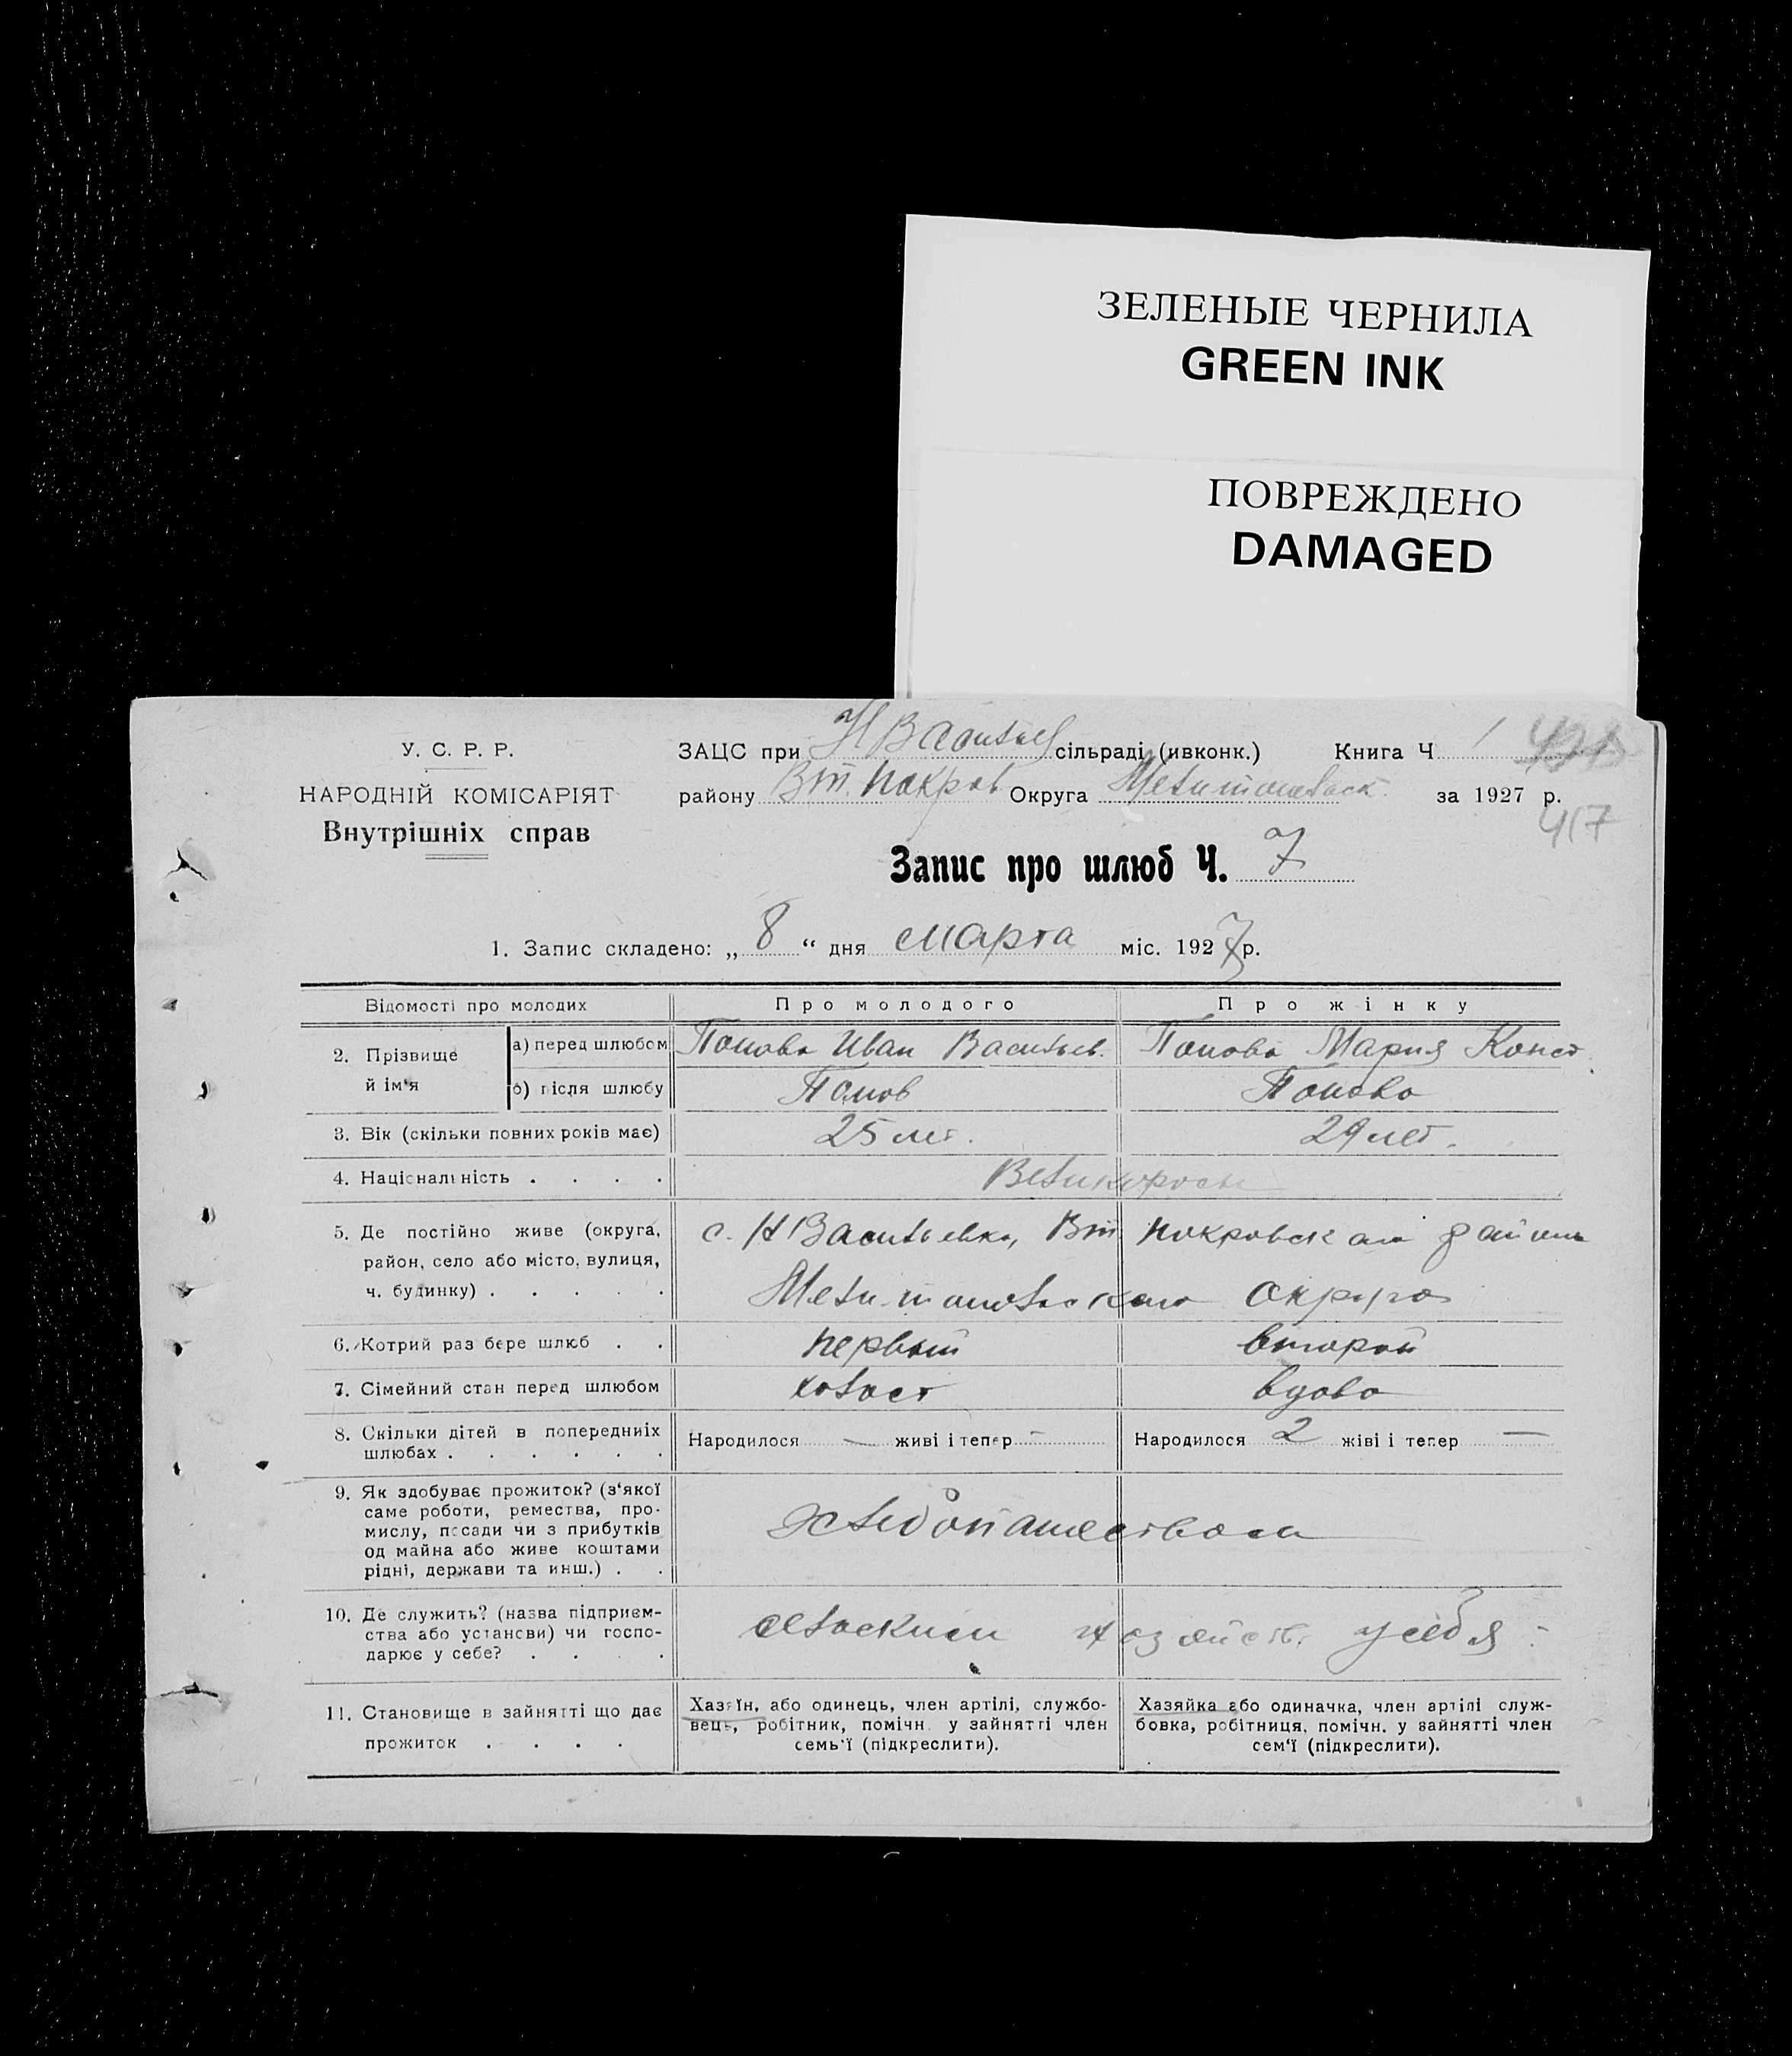 ЗЕЛЕНЫЕ ЧЕРНИЛА
GREEN INK
ПОВРЕЖДЕНО
DAMAGED
У. С. Р. Р.
НАРОДНІЙ КОМІСАРІЯТ
Внутрішніх справ
ЗАЦС при Н Васильев сільраді (ивконк.) Книга Ч 1
району Вт. Покров Округа Мелитопольск за 1927 р.
417
Запис про шлюб Ч. 7
1. Запис складено: „ 8 “ дня марта міс. 1927 р.
Відомості про молодих Про молодого Про жінку
2. Прізвище й ім‘я а) перед шлюбом Попова Иван Васильев. Попова Мария Конст.
б) після шлюбу Попов Попова
3. Вік (скільки повних років має) 25 лет. 29 лет.
4. Національність . . . . Великороссы
5. Де постійно живе (округа, с. Н Васильевка, Вт Покровскаго района
район, село або місто, вулиця,
ч. будинку) . . . . . Мелитопольскаго округа
6. Котрий раз бере шлюб . . первый второй
7. Сімейний стан перед шлюбом холост вдова
8. Скільки дітей в попередниіх Народилося — живі і тепер — Народилося 2 жіві і тепер —
шлюбах . . . . . .
9. Як здобуває прожиток? (з‘якої
саме роботи, ремества, про-
мислу, посади чи з прибутків хлебопашеством
од майна або живе коштами
рідні, держави та инш.) . .
10. Де служить? (назва підприєм-
ства або установи) чи госпо- сельским хозяйств. у себя
дарює у себе? . . . .
11. Становище в зайнятті що дає
прожиток . . . .
Хазяїн, або одинець, член артілі, службо-
вець, робітник, помічн. у зайнятті член
семь‘ї (підкреслити).
Хазяйка або одиначка, член артілі служ-
бовка, робітниця, помічн. у зайнятті член
сем‘ї (підкреслити).